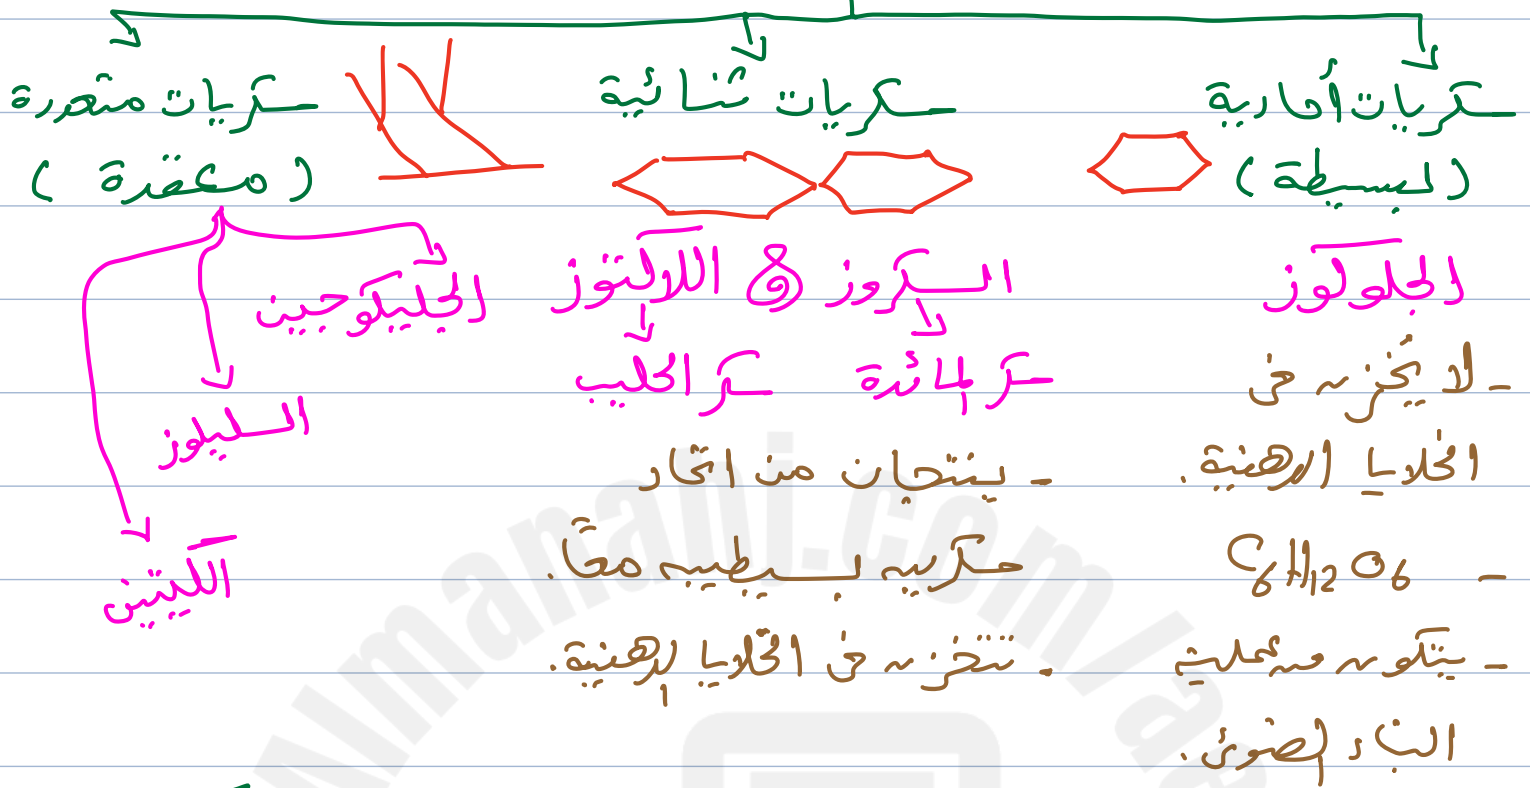 سكريات أحادية
(البسيطة)
الجلوكوز
- لا يخزن في
الخلايا الدهنية.
- C6H12O6
- يتكون من عملية
البناء الضوئي.
سكريات ثنائية
السكروز & اللاكتوز
سكر المائدة سكر الحليب
- ينتجان من اتحاد
سكرين بسيطين معًا.
- تتخزن في الخلايا الدهنية.
سكريات متعددة
(معقدة)
الجليكوجين
السليلوز
الكيتين
Almanahj.com/a